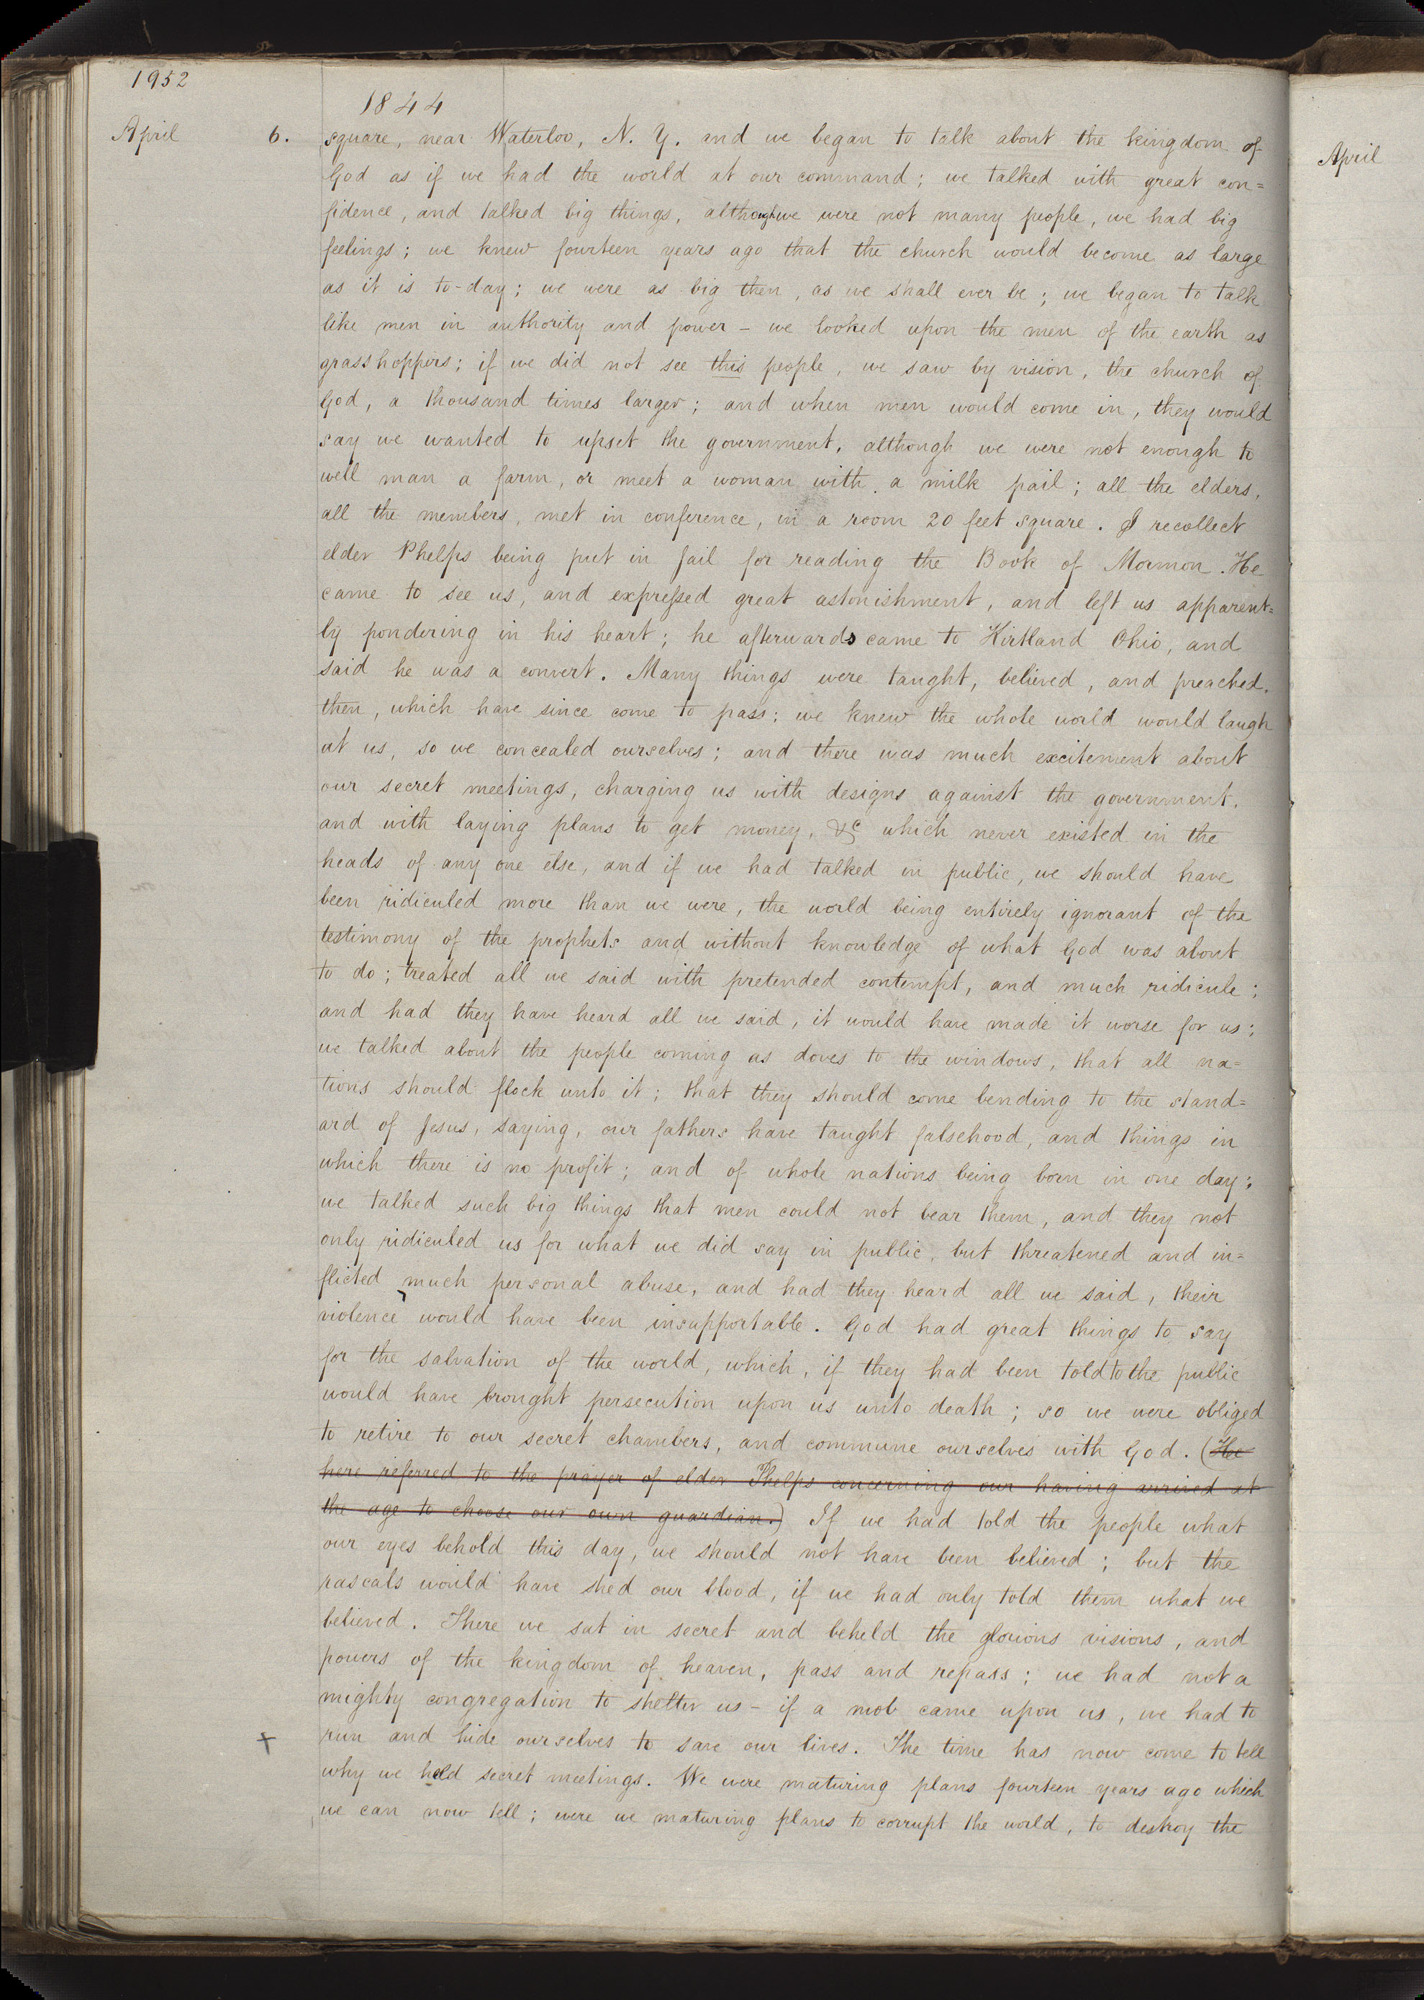 1952
1844
April 6. square, near Waterloo, N. Y. and we began to talk about the kingdom of
God as if we had the world at our command; we talked with great con=
fidence, and talked big things, although we were not many people, we had big
feelings; we knew fourteen years ago that the church would become as large
as it is to-day; we were as big then, as we shall ever be; we began to talk
like men in authority and power – we looked upon the men of the earth as
grasshoppers; if we did not see this people, we saw by vision, the church of
God, a thousand times larger; and when men would come in, they would
say we wanted to upset the government, although we were not enough to
well man a farm, or meet a woman with a milk pail; all the elders,
all the members, met in conference, in a room 20 feet square. I recollect
elder Phelps being put in jail for reading the Book of Mormon. He
came to see us, and expressed great astonishment, and left us apparent=
ly pondering in his heart; he afterwards came to Kirtland Ohio, and
said he was a convert. Many things were taught, believed, and preached,
then, which have since come to pass; we knew the whole world would laugh
at us, so we concealed ourselves; and there was much excitement about
our secret meetings, charging us with designs against the government,
and with laying plans to get money, &c which never existed in the
heads of any one else, and if we had talked in public, we should have
been ridiculed more than we were, the world being entirely ignorant of the
testimony of the prophets and without knowledge of what God was about
to do; treated all we said with pretended contempt, and much ridicule;
and had they have heard all we said, it would have made it worse for us;
we talked about the people coming as doves to the windows, that all na=
tions should flock unto it; that they should come bending to the stand=
ard of Jesus, saying, our fathers have taught falsehood, and things in
which there is no profit; and of whole nations being born in one day;
we talked such big things that men could not bear them, and they not
only ridiculed us for what we did say in public, but threatened and in=
flicted much personal abuse, and had they heard all we said, their
violence would have been insupportable. God had great things to say
for the salvation of the world, which, if they had been told to the public
would have brought persecution upon us unto death; so we were obliged
to retire to our secret chambers, and commune ourselves with God. (He
here referred to the prayer of elder Phelps concerning our having arrived at
the age to choose our own guardian.) If we had told the people what
our eyes behold this day, we should not have been believed; but the
rascals would have shed our blood, if we had only told them what we
believed. There we sat in secret and beheld the glorious visions, and
powers of the kingdom of heaven, pass and repass; we had not a
mighty congregation to shelter us – if a mob came upon us, we had to
run and hide ourselves to save our lives. The time has now come to tell
why we held secret meetings. We were maturing plans fourteen years ago which
we can now tell; were we maturing plans to corrupt the world, to destroy the
April